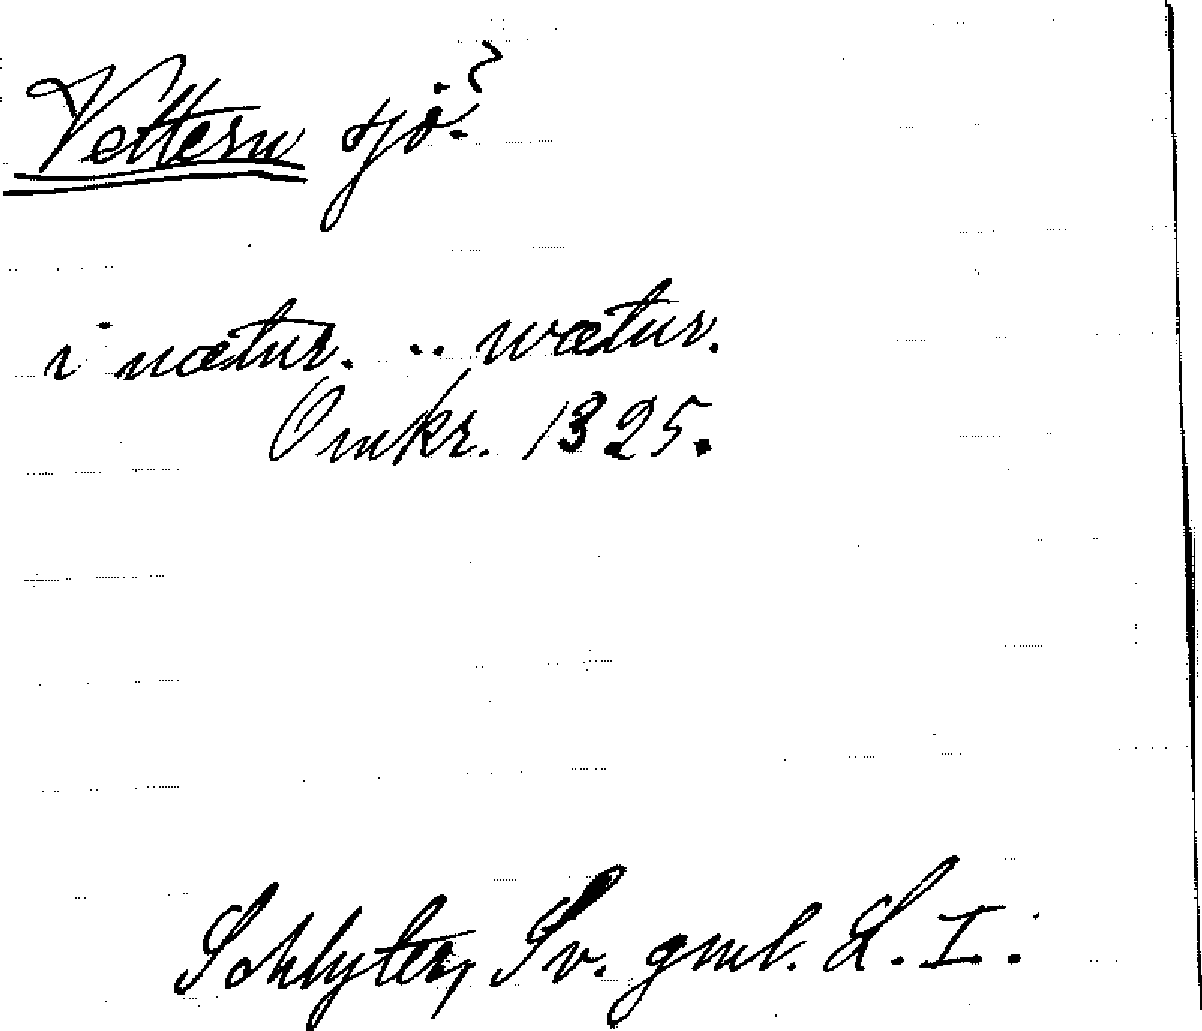 Vettern sjö?
i vætur. .. wætur.
Omkr. 1325.
Schlyter, Sv. gml. L. I.